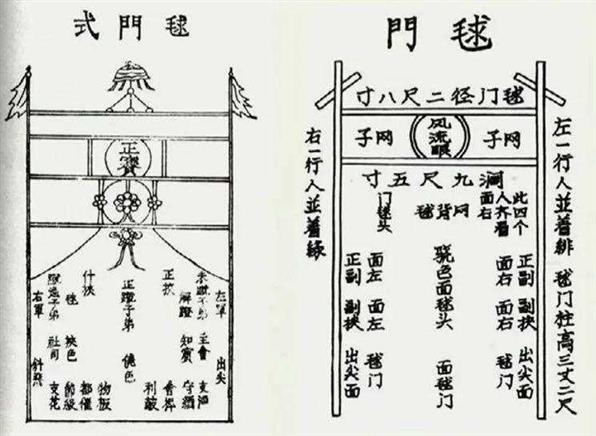 毬門
左一行人並着緋 毬门柱高三丈二尺
毬门径二尺八寸
网子
风流眼
网子
濶九尺五寸
此四个
人齐看
面右
网背毬
门毬头
正副 副挟 出尖面
面右 面右 毬门
骁色面毬头 面毬门
面左 面左 毬门
正副 副挟 出尖面
右一行人並着綠
毬門式
正賽
左軍 出尖
未蹴子弟 主會 支酒
解蹬 知賓 守網
正挾
會幹
利敵
正蹴子弟 僥色
什挾
物板
都催
挾色
社司 支花
右軍 斜飛